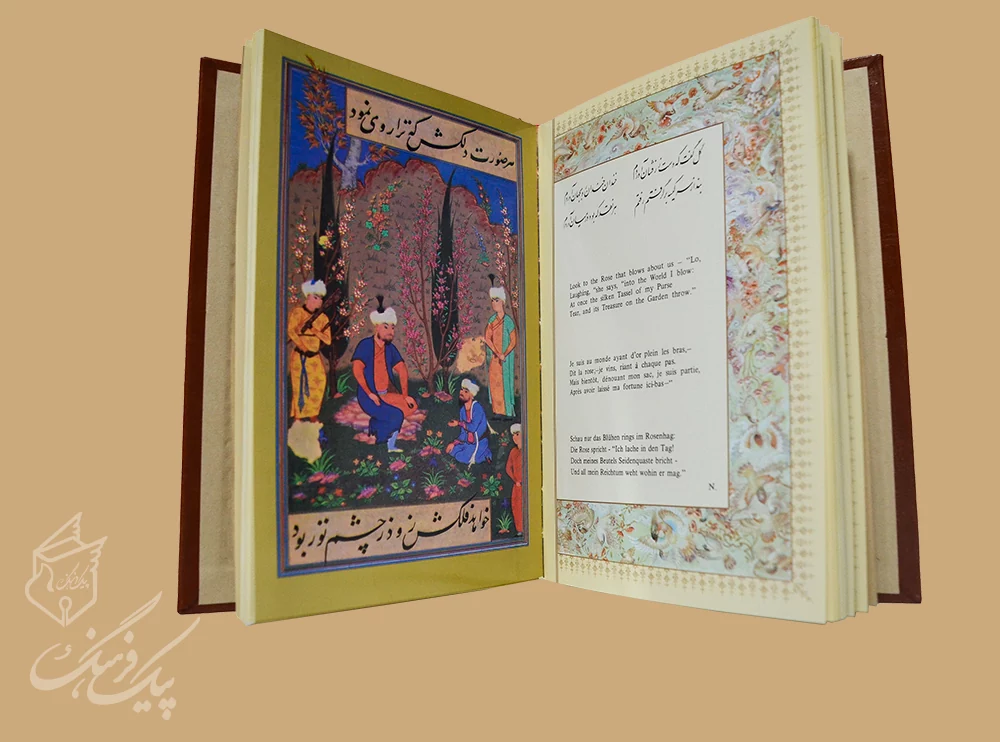 هر صورت دلکش که ترا روی نمود
خواهد فلکش زود ز چشم تو ربود
گل گفت که دست زرفشان آوردم
خندان خندان رو بجهان آوردم
بند از سر کیسه برگرفتم رفتم
هر نقد که بود در میان آوردم
Look to the Rose that blows about us – "Lo,
Laughing, "she says, "into the World I blow:
At once the silken Tassel of my Purse
Tear, and its Treasure on the Garden throw."
Je suis au monde ayant d'or plein les bras,–
Dit la rose;-je vins, riant à chaque pas.
Mais bientôt, dénouant mon sac, je suis partie,
Après avoir laissé ma fortune ici-bas–"
Schau nur das Blühen rings im Rosenhag:
Die Rose spricht - "Ich lache in den Tag!
Doch meines Beutels Seidenquaste bricht -
Und all mein Reichtum weht wohin er mag."
N.
پیک فرهنگ